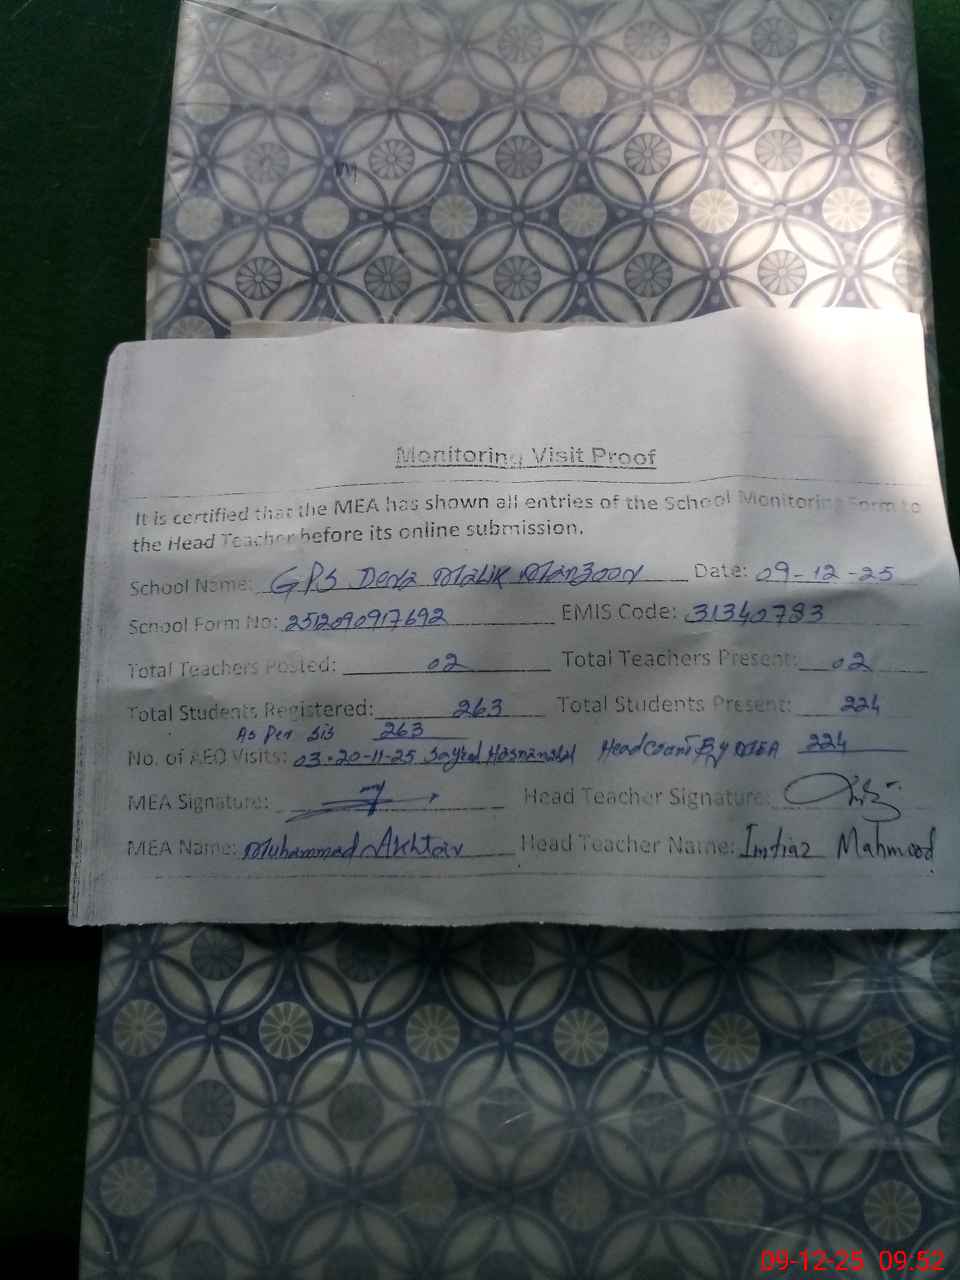 Monitoring Visit Proof
It is certified that the MEA has shown all entries of the School Monitoring Form to
the Head Teacher before its online submission.
School Name: GPS Dera Malik Manzoor Date: 09-12-25
School Form No: 2512090917692 EMIS Code: 31340783
Total Teachers Posted: 02 Total Teachers Present: 02
Total Students Registered: 263 Total Students Present: 224
As Per Sis 263
No. of AEO Visits: 03-20-11-25 Head Count By MEA 224
MEA Signature: Head Teacher Signature:
MEA Name: Muhammad Akhtar Head Teacher Name: Imtiaz Mahmood
09-12-25 09:52